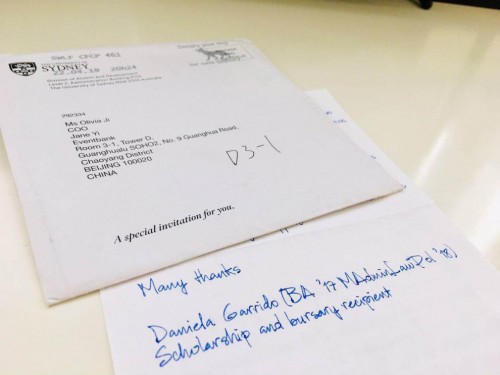 SWLF CPCF 461
SYDNEY
22.04.19
Division of Alumni and Development
The University of Sydney NSW 2006 Australia
792334
Ms Olivia Ji
COO
Jane Yi
Eventbank
Room 3-1, Tower D,
Guanghualu SOHO2, No. 9 Guanghua Road,
Chaoyang District
BEIJING 100020
CHINA
D3-1
A special invitation for you.
Many thanks
Daniela Garrido (BA '17 MAdminLawPol '18)
Scholarship and bursary recipient